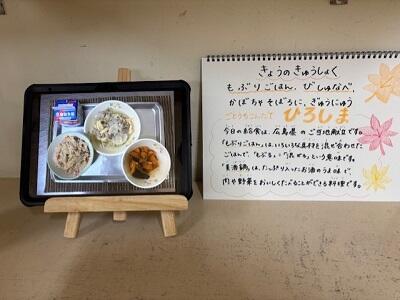 きょうのきゅうしょく
もぶりごはん、びしゅなべ、
かぼちゃそぼろに、ぎゅうにゅう
ごとうちこんだて ひろしま
今日の給食は、広島県のご当地献立です。
「もぶりごはん」は、いろいろな具材を混ぜ合わせた
ごはんで、「もぶる」は「混ぜる」という意味です。
「美酒鍋」は、たっぷり入ったお酒のうま味で、
肉や野菜をおいしくたべることができる料理です。